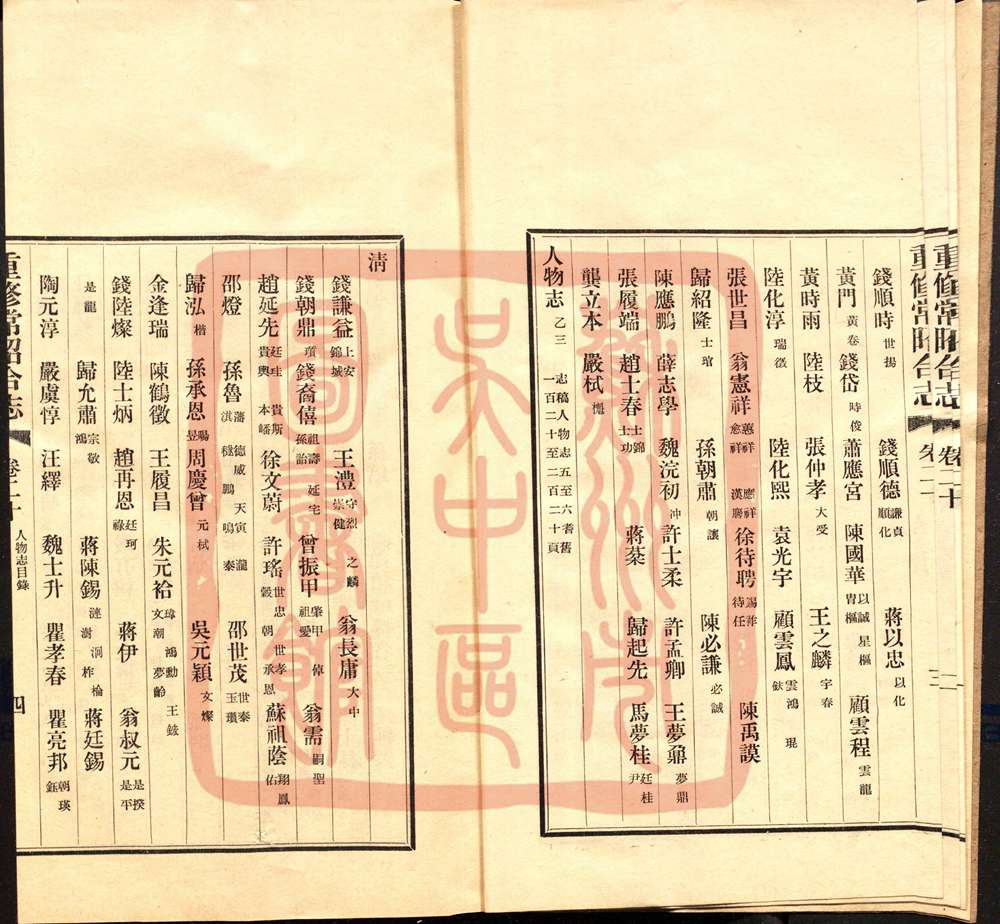 重修常昭合志 卷二十 二
重修常昭合志 卷二十 三
錢順時 世揚 錢順德 謙貞 順化 蔣以忠 以化
黃門 黃卷 錢岱 時俊 蕭應宮 陳國華 以誠 星樞 胄樞 顧雲程 雲龍
黃時雨 陸枝 張仲孝 大受 王之麟 宇春
陸化淳 瑞徵 陸化熙 袁光宇 顧雲鳳 雲鴻 琨 鈦
張世昌 翁憲祥 蕙祥 應祥 愈祥 漢麐 徐待聘 錫祚 待任 陳禹謨
歸紹隆 士琯 孫朝肅 朝讓 陳必謙 必誠
陳應鵬 薛志學 魏浣初 沖 許士柔 許孟卿 王夢鼐 夢鼎
張履端 趙士春 士錦 士功 蔣棻 歸起先 馬夢桂 廷桂 尹
龔立本 嚴栻 熊
人物志 乙三 志稿人物志五至六耆舊 一百二十至二百二十頁
清
錢謙益 上安 錦城 王澧 守烈 之麟 崇健 翁長庸 大中
錢朝鼎 瓚 錢裔僖 祖壽 延宅 孫詒 曾振甲 肇甲 倬 祖愛 翁需 嗣聖
趙延先 廷珪 貴斯 貴輿 本㟙 徐文蔚 許瑤 世忠 世孝 穀 朝 承恩 蘇祖蔭 翔鳳 佑
邵燈 孫魯 藩 德威 天寅 瀧 淇 䅘鵬 鳴 泰 邵世茂 世泰 玉瓚
歸泓 楷 孫承恩 暘 昱 周慶曾 元栻 吳元穎 文燦
金逢瑞 陳鶴徵 王履昌 朱元祫 瑋 鴻勳 王鉉 文潮 夢齡
錢陸燦 陸士炳 趙再恩 廷珂 祿 蔣伊 翁叔元 是揆 是平
是龍 歸允肅 宗敬 鴻 蔣陳錫 漣 泂 檢 澍 柞 蔣廷錫
陶元淳 嚴虞惇 汪繹 魏士升 瞿孝春 瞿亮邦 朝瑛 鈺
重修常昭合志 卷二十 人物志目錄 四